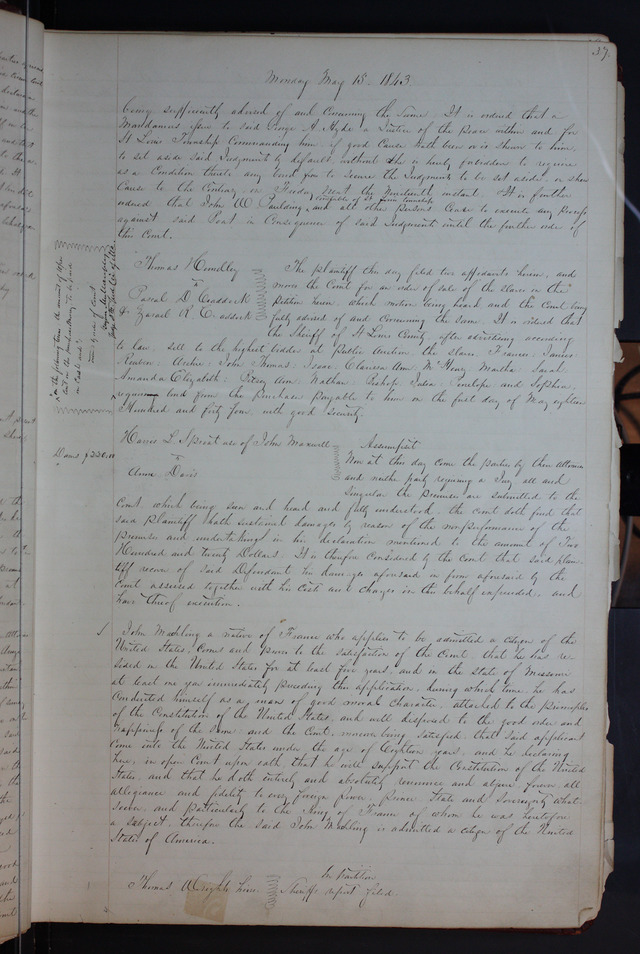 37.
Monday May 15. 1843
being sufficiently advised of and concerning the same. It is ordered that a
Mandamus issue to said George A Hyde a Justice of the peace within and for
St Louis Township Commanding him if good Cause hath been or is shown to him
to set aside said Judgment by default without the is hereby forbidden to require
as a Condition any bond for to secure the Judgment to be set aside or show
Cause to the Contrary on Friday next the Nineteenth instant. It is further
Constable of St Louis Township
ordered that John W Paulding and all other persons Cease to execute any process
against said Pont in Consequence of said Judgment until the further order of
this Court.
Thomas
vs
Pascal D Craddock
Zacael R Craddock
The plaintiff this day filed two affidavits herein, and
moves the Court for an order of sale of the slaves in the
Petition herein, which motion being heard and the Court being
fully advised of and concerning the same. It is ordered that
the Sheriff of St Louis County after advertising according
to law, sell to the highest bidder at Public Auction the slaves Frances: James:
Reuben: Archie: John Thomas: Isaac: Clarissa Ann: Mc Henry Martha Sarah
Amanda Elizabeth: Patsy Ann: Nathan: Bishop: Julia: Penelope and Sophia,
requiring bond from the purchase payable to him on the first day of May eighteen
Hundred and forty four, with good security
Harris L Sproat use of John Maxwell
vs
Anne Davis
Dams $220.00
Assumpsit
Now at this day come the parties by their attornies
and neither party requiring a Jury all and
singular the premises are submitted to the
Court which being seen and heard and fully understood, the court doth find that
said plaintiff hath sustained damages by reason of the nonperformance of the
promises and undertakings in his declaration mentioned to the amount of Two
Hundred and twenty Dollars. It is therefore Considered by the Court that said plain-
tiff recover of said Defendant his damages aforesaid in form aforesaid by the
Court assessed together with his Costs and charges in this behalf expended, and
have thereof execution.
John Mechling a native of France who applies to be admitted a citizen of the
United States, Comes and proves to the satisfaction of the Court, that he has re-
sided in the United States for at least five years, and in the State of Missouri
at least one year immediately preceding this application, during which time he has
Conducted himself as a man of good moral character, attached to the principles
of the Constitution of the United States, and well disposed to the good order and
happiness of the same: and the Court, moreover being satisfied, that said applicant
Came into the United States under the age of Eighteen years, and he declaring
here, in open Court upon oath, that he will support the Constitution of the United
States, and that he doth entirely and absolutely renounce and abjure forever all
allegiance and fidelity to every foreign power, prince State and Sovereignty what-
soever, and particularly to the King of France of whom he was heretofore
a subject; therefore the said John Mechling is admitted a citizen of the United
States of America.
Thomas Wright heirs
In Partition
Sheriffs report filed.